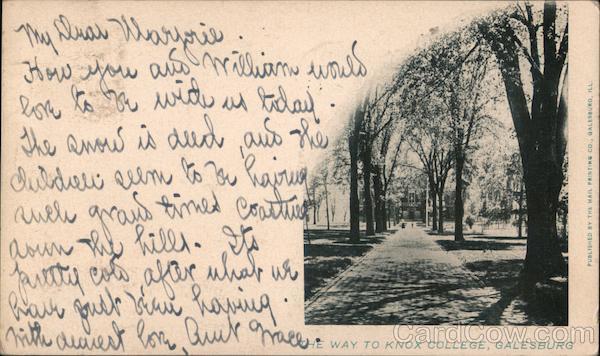 My Dear Marjorie.
How you and William would
love to be with us today.
The snow is deep and the
children seem to be having
such grand times coasting
down the hills. Its
pretty cold after what we
have just been having.
With dearest love, Aunt Grace.
THE WAY TO KNOX COLLEGE, GALESBURG
PUBLISHED BY THE MAIL PRINTING CO., GALESBURG, ILL.
CardCow.com